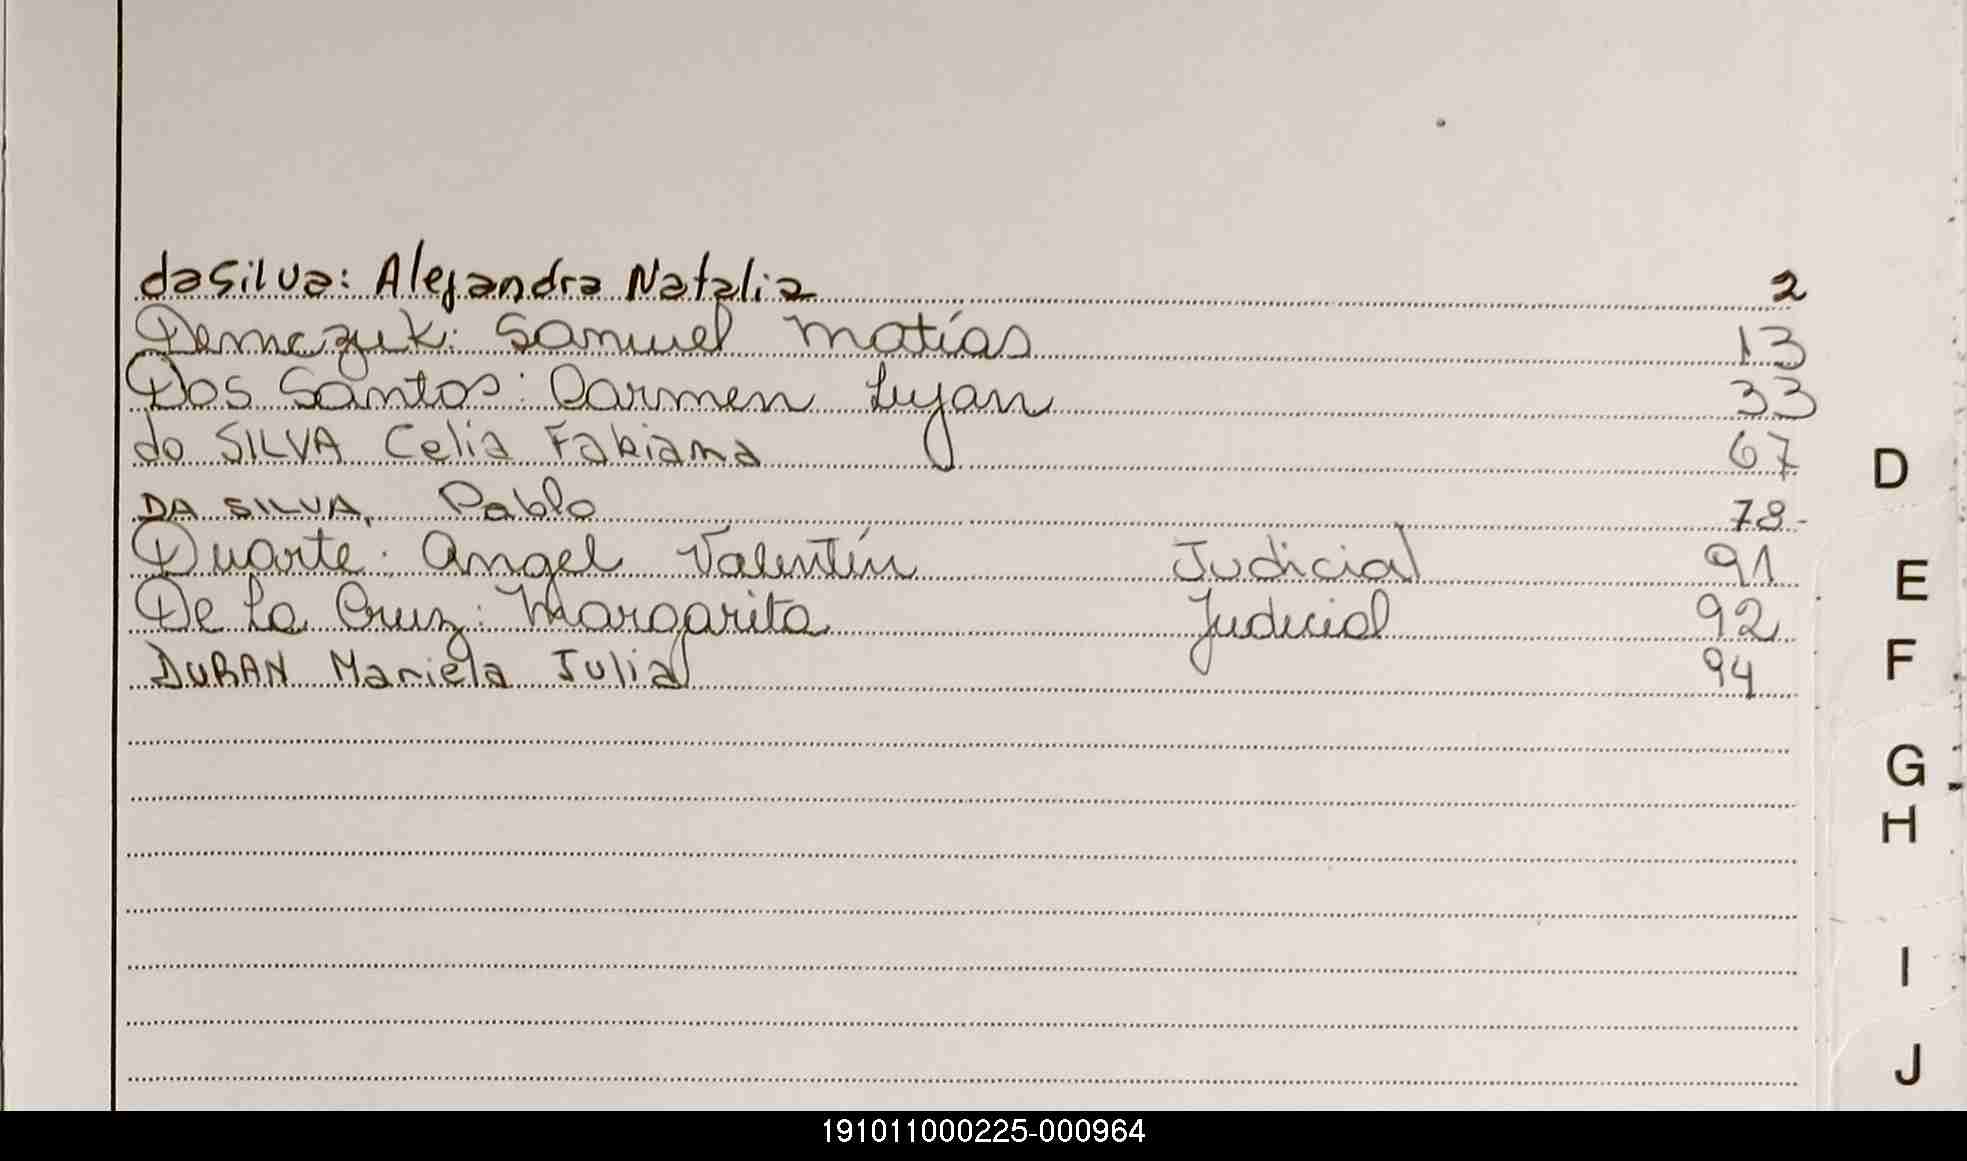 daSilva: Alejandra Natalia 2
Demczuk: Samuel Matías 13
Dos Santos: Carmen Lujan 33
do SILVA Celia Fabiana 67
DA SILVA, Pablo 78-
Duarte: Angel Valentín Judicial 91
De La Cruz: Margarita Judicial 92
DURAN Mariela Julia 94
D
E
F
G
H
I
J
191011000225-000964